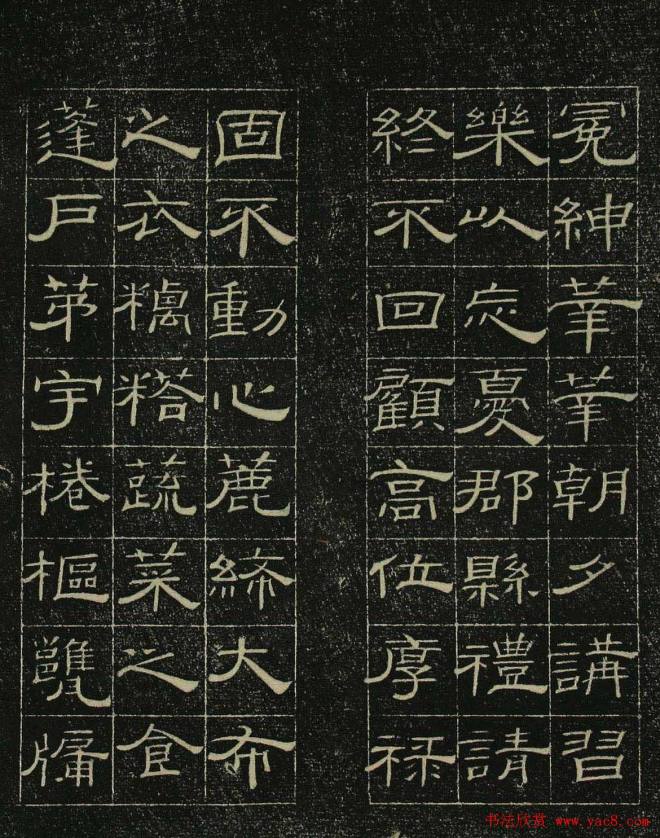 冕紳莘莘朝夕講習
樂以忘憂郡縣禮請
終不回顧高位厚祿
固不動心麤絺大布
之衣糲蔬菜之食
蓬戶茅宇棬樞甕牖
书法欣赏 www.yac8.com